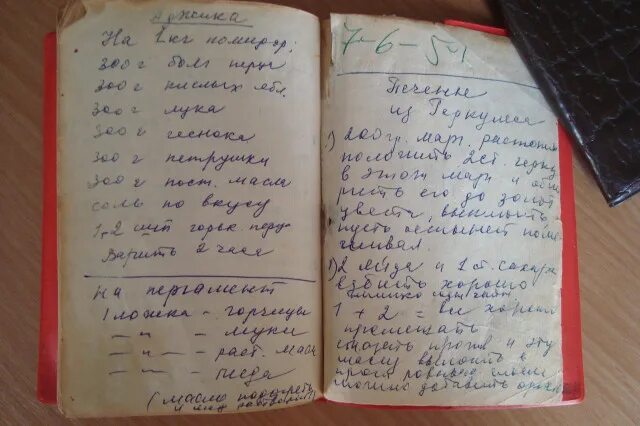 Аджика
На 1 кг помидор:
300 г болг перца
300 г кислых ябл.
300 г лука
300 г чеснока
300 г петрушки
300 г пост. масла
соль по вкусу
1-2 шт горьк. перца
Варить 2 часа
На пергамент
1 ложка - горчицы
— " — муки
— " — раст. масла
— " — меда
(масло подогреть
и мед растворить)
7-6-54
Печенье
из Геркулеса
1) 200 гр. мар. растопить
положить 2 ст. герку
в этом мар и
рить его до золот
цвета, выключить
пусть остынет
2) 2 яйца и 1 ст. сахара
взбить хорошо
1 + 2 = все хорошо
промешать
противень и эту
массу выложить в
ровным слоем
можно добавить орехи